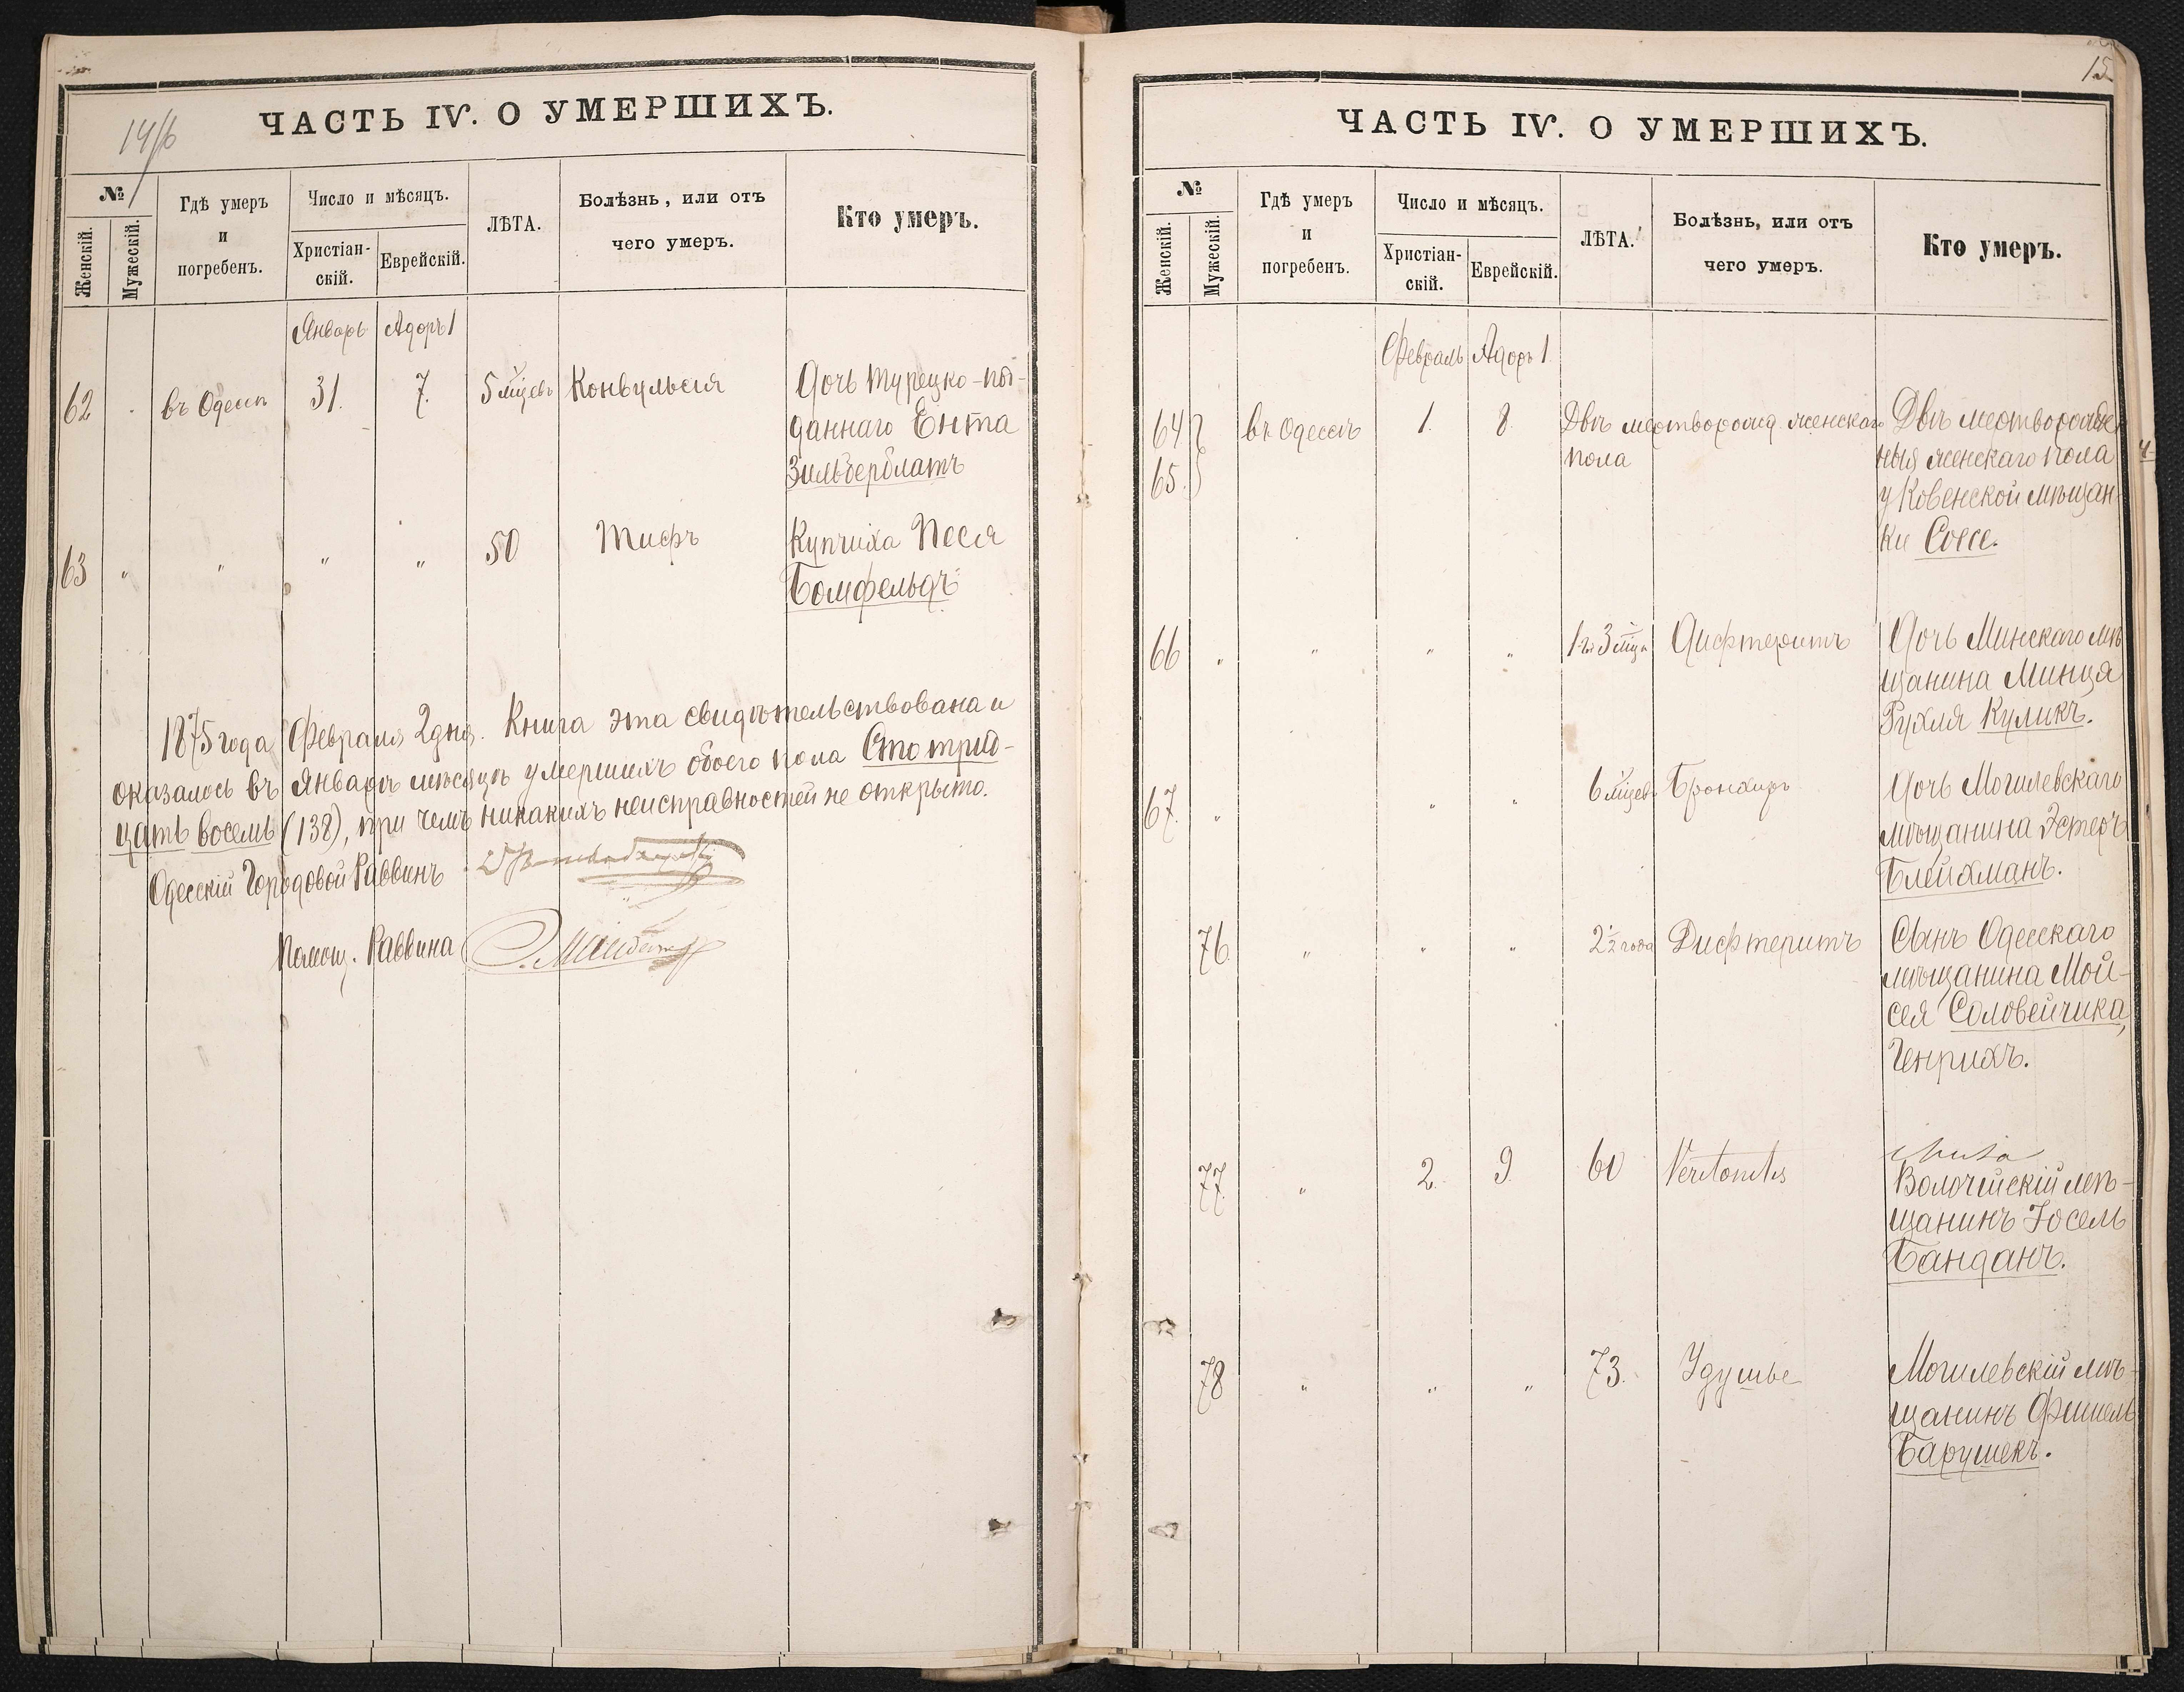 14/б
ЧАСТЬ IV. О УМЕРШИХЪ.
№
Женскій.
Мужескій.
Гдѣ умеръ
и
погребенъ.
Число и мѣсяцъ.
Христіан-
скій.
Еврейскій.
ЛѢТА.
Болѣзнь, или отъ
чего умеръ.
Кто умеръ.
Январь Адоръ 1
62 въ Одессѣ 31. 7. 5 мцевъ Конвульсія Дочь турецко-под-
даннаго Ента
Зильберблатъ
63 " " " " 50 Тифъ Купчиха Песя
Бомфельдъ
1875 года Февраля 2 дня. Книга эта свидѣтельствована и
оказалось въ Январѣ мѣсяцѣ умершихъ обоего пола Сто трид-
цать восемь (138), при чемъ никакихъ неисправностей не открыто.
Одесскій Городовой Раввинъ
Помощ. Раввина
15
ЧАСТЬ IV. О УМЕРШИХЪ.
№
Женскій.
Мужескій.
Гдѣ умеръ
и
погребенъ.
Число и мѣсяцъ.
Христіан-
скій.
Еврейскій.
ЛѢТА.
Болѣзнь, или отъ
чего умеръ.
Кто умеръ.
Февраль Адоръ 1
64 въ Одессѣ 1. 8. Двѣ мертворожд. женскаго Двѣ мертворожден
65. пола ныя женскаго пола
у Ковенской мѣщан-
ки Сосse.
66 " " " " 1 г. 3 мцa Дифтеритъ Дочь Минскаго мѣ
щанина Минця
Рухля Куликъ.
67. " " " 6 мцев. Бронхидъ Дочь Могилевскаго
мѣщанина Эстеръ
Блейхманъ.
76 " " " 2½ года Дифтеритъ Сынъ Одесскаго
мѣщанина Мой-
сея Соловейчика,
Генрихъ.
77. " 2. 9. 60 Peritonitis
Волочискій мѣ-
щанинъ Іосель
Банданъ.
78 " " " 73. Удушье Могилевскій мѣ-
щанинъ Фишель
Барушекъ.